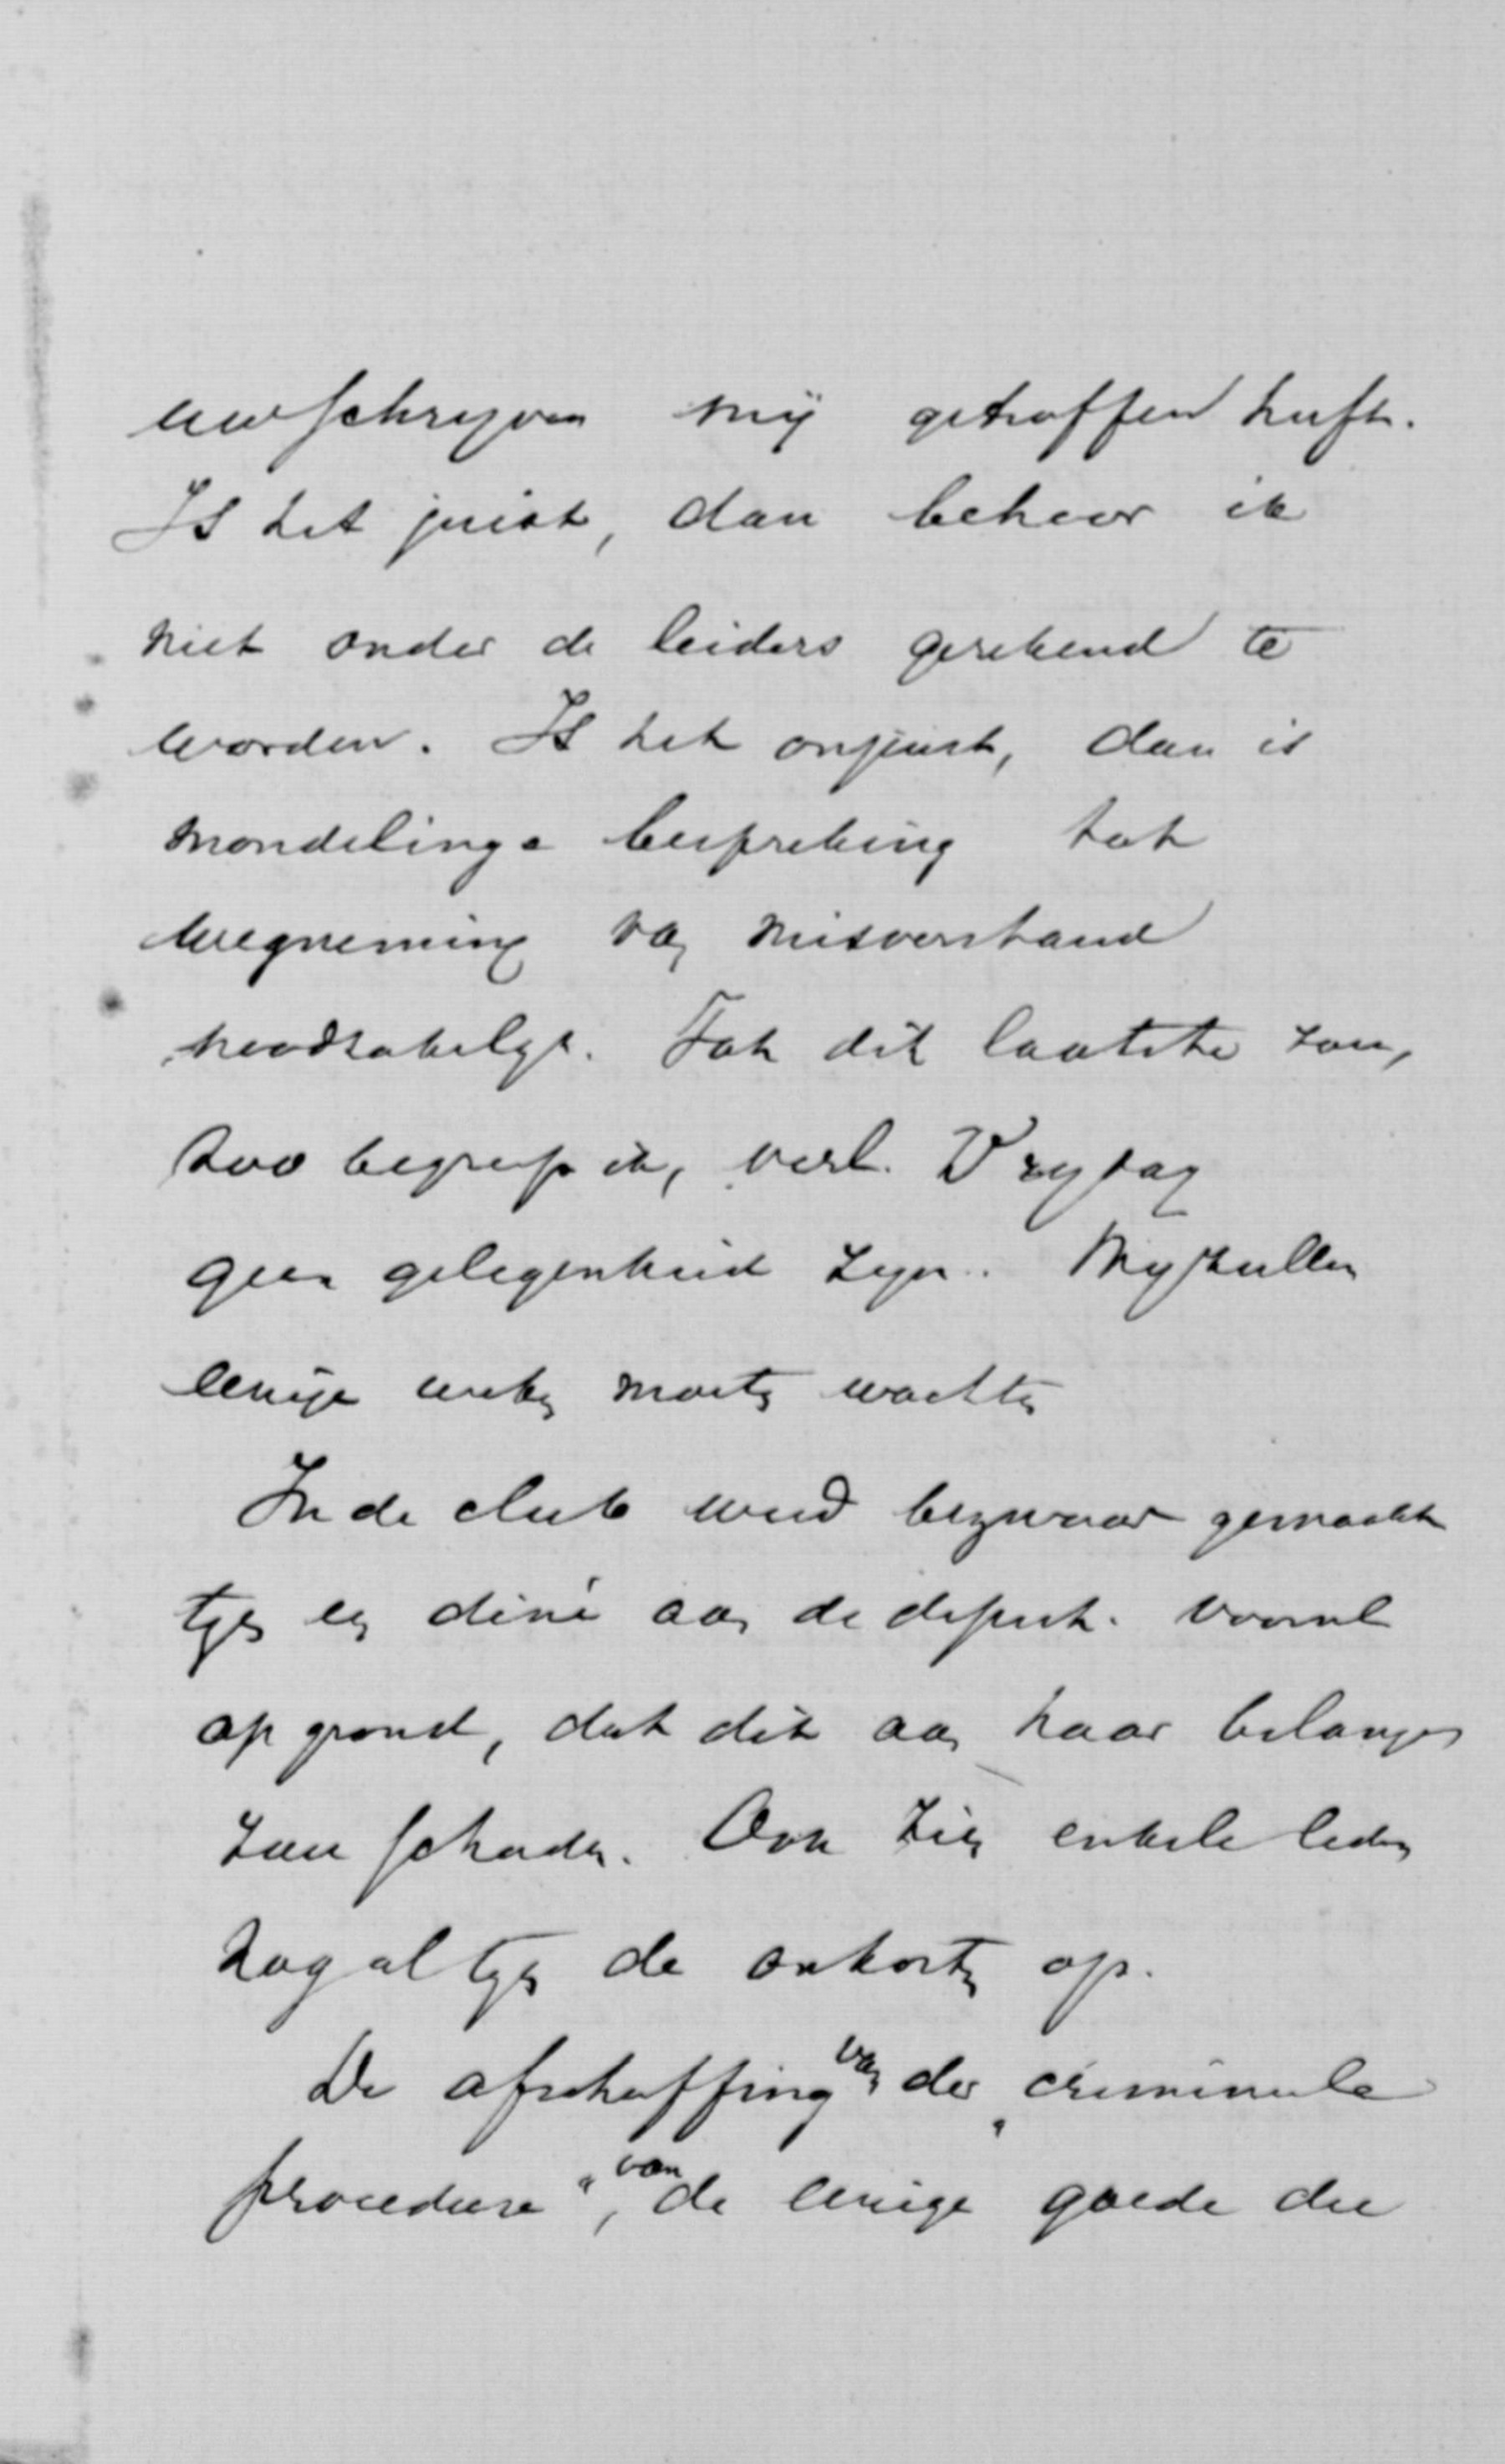 uw schrijven mij getroffen heeft.
Is het juist, dan behoor ik
niet onder de leiders gerekend te
worden. Is het onjuist, dan is
mondelinge bespreking tot
wegneming van misverstand
noodzakelijk. Tot dit laatste zou,
zoo begreep ik, verl. Vrijdag
geen gelegenheid zijn. Wij zullen
eenige weken moeten wachten
In de club werd bezwaar gemaakt
tegen een diné aan de deput. vooral
op grond, dat dit aan haar belangen
zou schaden. Ook zien enkele leden
nog al tegen de onkosten op.
De afschaffing van der "criminele
procedure", van de eenige goede die